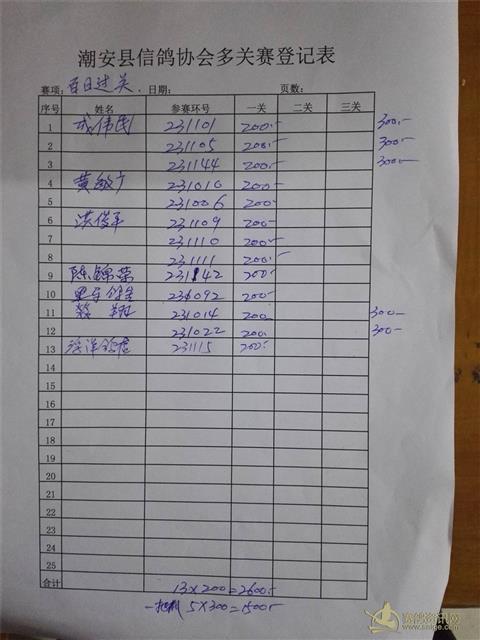 潮安县信鸽协会多关赛登记表
赛项：百日过关 . 日期： 页数：
序号 姓名 参赛环号 一关 二关 三关
1 成伟民 231101 200.- 300.-
2 231105 200.- 300.-
3 231144 200.- 300.-
4 黄 231010 200.-
5 231006 200.-
6 洪俊平 231109 200.-
7 231110 200.-
8 231111 200.-
9 陈锦荣 231142 200.-
10 231092 200.-
11 翔 231014 200. 300.-
12 231022 200. 300.-
13 231115 200.-
14
15
16
17
18
19
20
21
22
23
24
25
合计 13×200=2600.-
5×300=1500.-
赛鸽资讯网
www.snipe.com